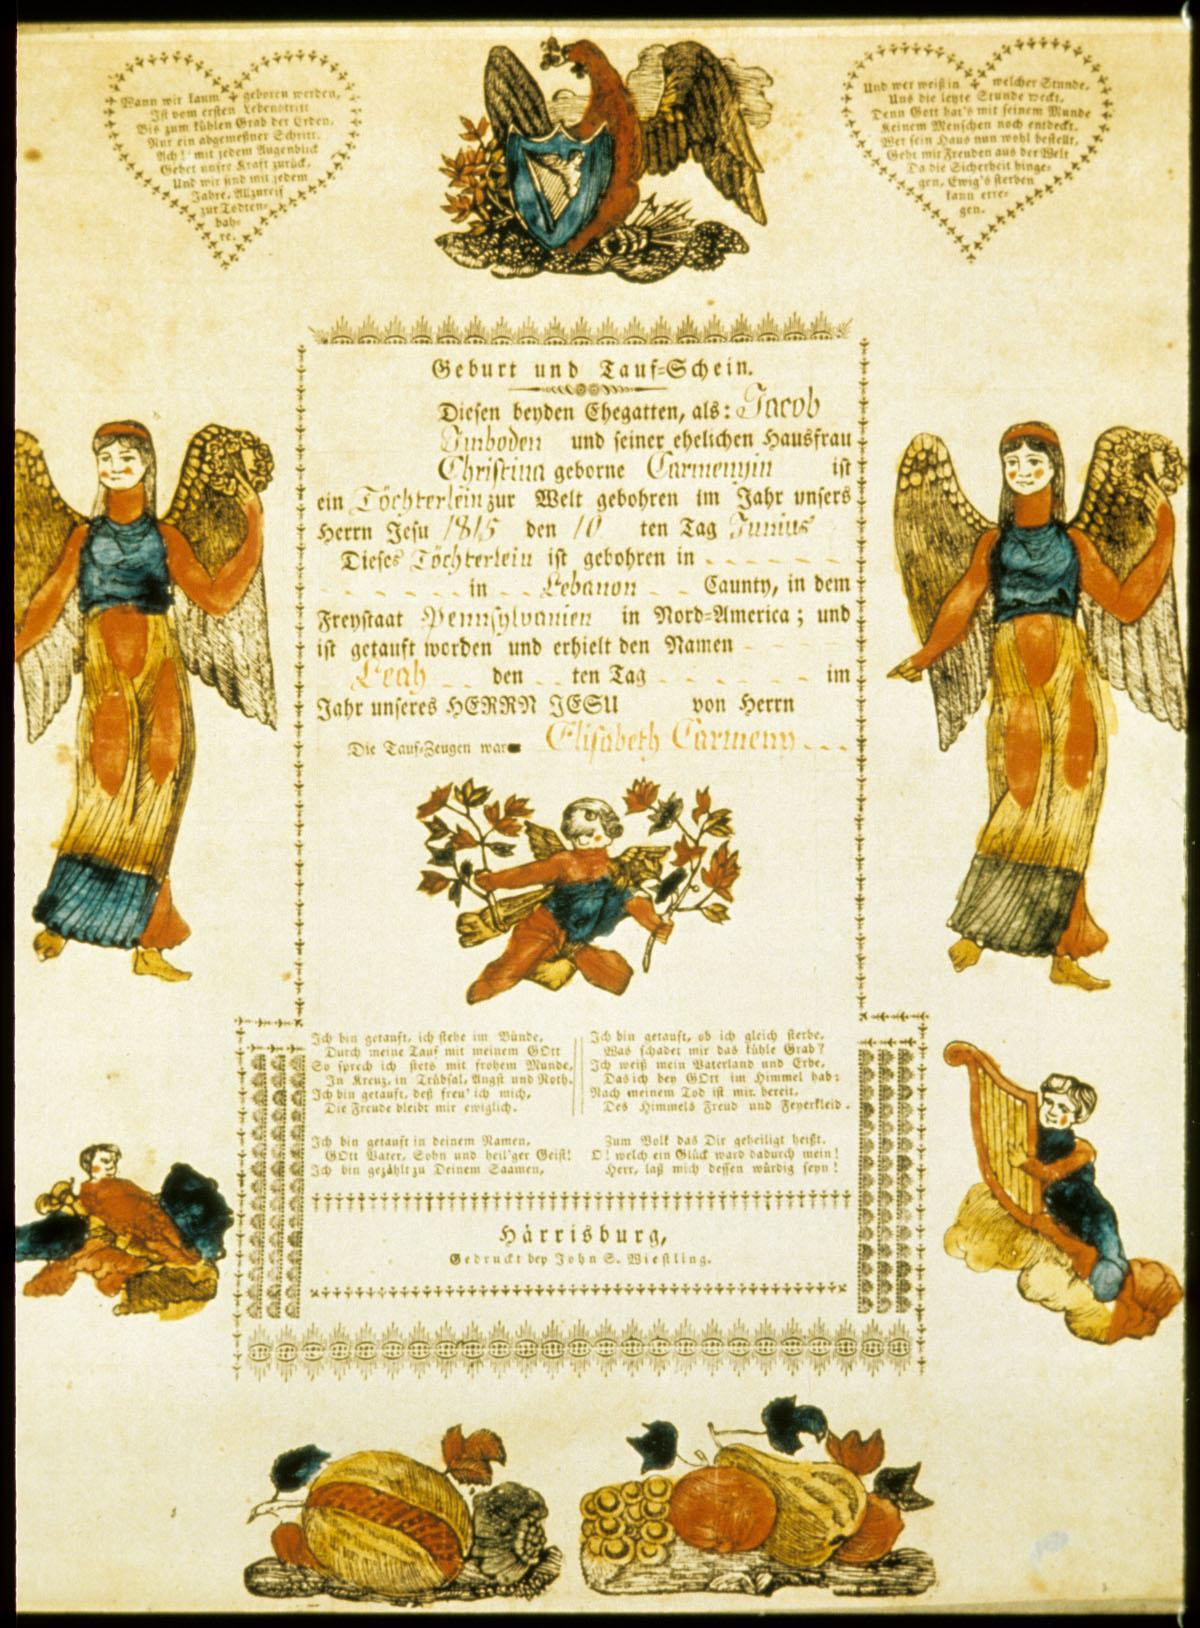 Wann wir kaum geboren werden,
Ist vom ersten Lebenstritt
Bis zum kühlen Grab der Erden,
Nur ein abgemeßner Schritt.
Ach! mit jedem Augenblick
Gehet unsre Kraft zurück,
Und wir sind mit jedem
Jahre, Allzureif
zur Todten-
bah-
re.
Und wer weiß in welcher Stunde,
Uns die letzte Stunde weckt.
Denn Gott hat's mit seinem Munde
Keinem Menschen noch entdeckt.
Wer sein Haus nun wohl bestellt,
Geht mit Freuden aus der Welt
Da die Sicherheit hinge-
gen, Ewig's sterben
kann erre-
gen.
Geburt und Tauf-Schein.
Diesen beyden Ehegatten, als: Jacob
Imboden und seiner ehelichen Hausfrau
Christina geborne Carmenyin ist
ein Töchterlein zur Welt gebohren im Jahr unsers
Herrn Jesu 1815 den 10 ten Tag Junius
Dieses Töchterlein ist gebohren in
in Lebanon Caunty, in dem
Freystaat Pennsylvanien in Nord-America; und
ist getauft worden und erhielt den Namen
Leah den ten Tag im
Jahr unseres HERRN JESU von Herrn
Die Tauf-Zeugen ware Elisabeth Carmeny
Ich bin getauft, ich stehe im Bunde,
Durch meine Tauf mit meinem GOtt
So sprech ich stets mit frohem Munde,
In Kreuz, in Trübsal, Angst und Noth.
Ich bin getauft, deß freu' ich mich,
Die Freude bleibt mir ewiglich.
Ich bin getauft, ob ich gleich sterbe,
Was schadet mir das kühle Grab?
Ich weiß mein Vaterland und Erbe,
Das ich bey GOtt im Himmel hab:
Nach meinem Tod ist mir bereit,
Des Himmels Freud und Feyerkleid.
Ich bin getauft in deinem Namen,
GOtt Vater, Sohn und heil'ger Geist!
Ich bin gezählt zu Deinem Saamen,
Zum Volk das Dir geheiligt heißt.
O! welch ein Glück ward dadurch mein!
Herr, laß mich dessen würdig seyn!
Härrisburg,
Gedruckt bey John S. Wiestling.